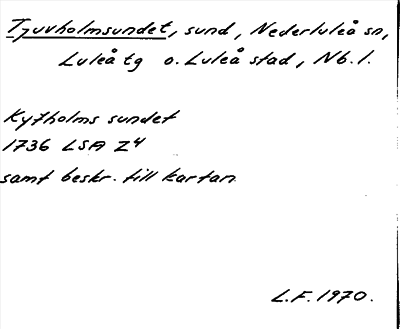 Tjuvholmsundet, sund, Nederluleå sn,
Luleå tg o. Luleå stad, Nb. l.
Kyfholms sundet
1736 LSA Z4
samt beskr. till kartan
L.F. 1970.